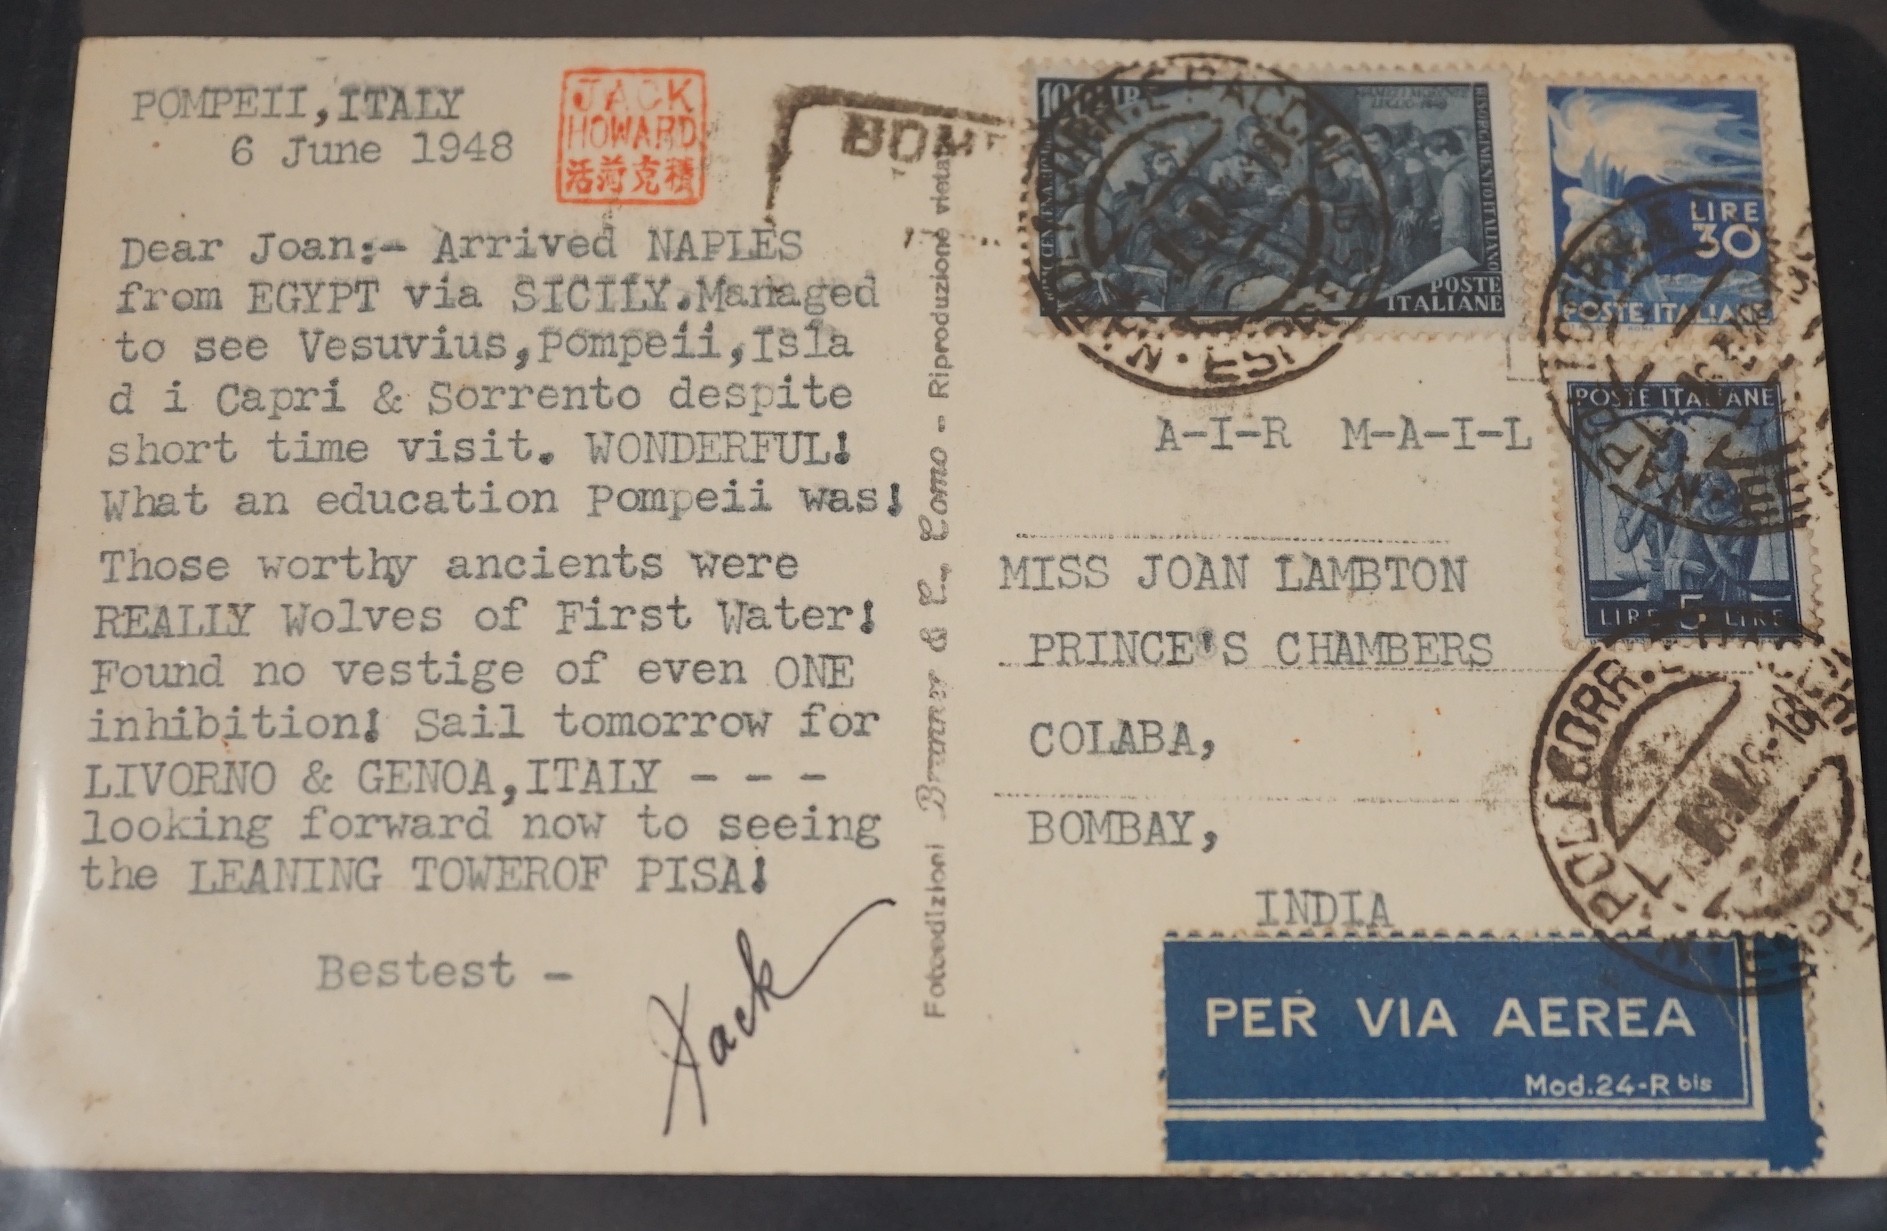 POMPEII, ITALY
6 June 1948
JACK
HOWARD
Dear Joan:- Arrived NAPLES
from EGYPT via SICILY.Managed
to see Vesuvius,Pompeii,Isla
d i Capri & Sorrento despite
short time visit. WONDERFUL!
What an education Pompeii was!
Those worthy ancients were
REALLY Wolves of First Water!
Found no vestige of even ONE
inhibition! Sail tomorrow for
LIVORNO & GENOA,ITALY - - -
looking forward now to seeing
the LEANING TOWEROF PISA!
Bestest -
Jack
Fotoedizioni Brunner & C., Como - Riproduzione vietata
100 LIRE
RISORGIMENTO ITALIANO
POSTE
ITALIANE
LIRE
30
POSTE ITALIANE
POSTE ITALIANE
LIRE 5 LIRE
A-I-R M-A-I-L
MISS JOAN LAMBTON
PRINCE'S CHAMBERS
COLABA,
BOMBAY,
INDIA
PER VIA AEREA
Mod.24-R bis